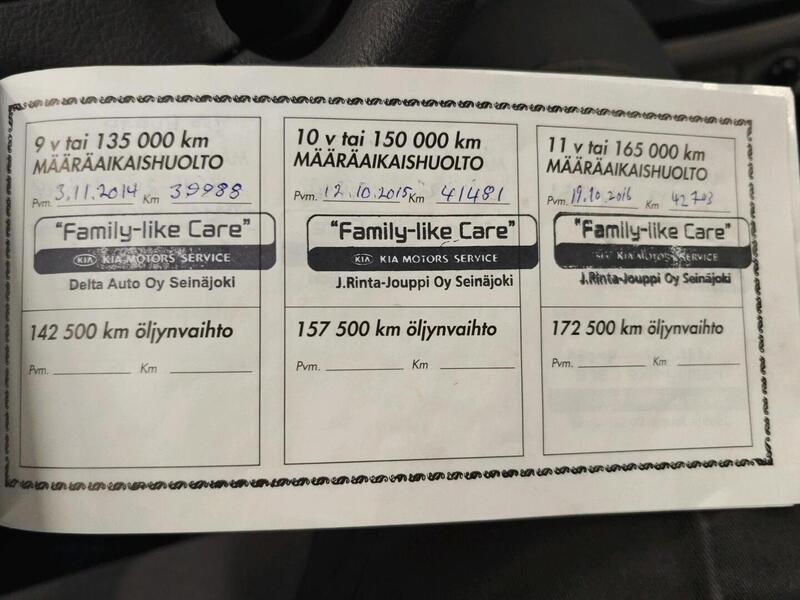 9 v tai 135 000 km
MÄÄRÄAIKAISHUOLTO
Pvm. 3.11.2014 Km 39988
"Family-like Care"
KIA KIA MOTORS SERVICE
Delta Auto Oy Seinäjoki
142 500 km öljynvaihto
Pvm. Km
10 v tai 150 000 km
MÄÄRÄAIKAISHUOLTO
Pvm. 12.10.2015 Km 41481
"Family-like Care"
KIA KIA MOTORS SERVICE
J.Rinta-Jouppi Oy Seinäjoki
157 500 km öljynvaihto
Pvm. Km
11 v tai 165 000 km
MÄÄRÄAIKAISHUOLTO
Pvm. 19.10.2016 Km 42703
"Family-like Care"
KIA KIA MOTORS SERVICE
J.Rinta-Jouppi Oy Seinäjoki
172 500 km öljynvaihto
Pvm. Km